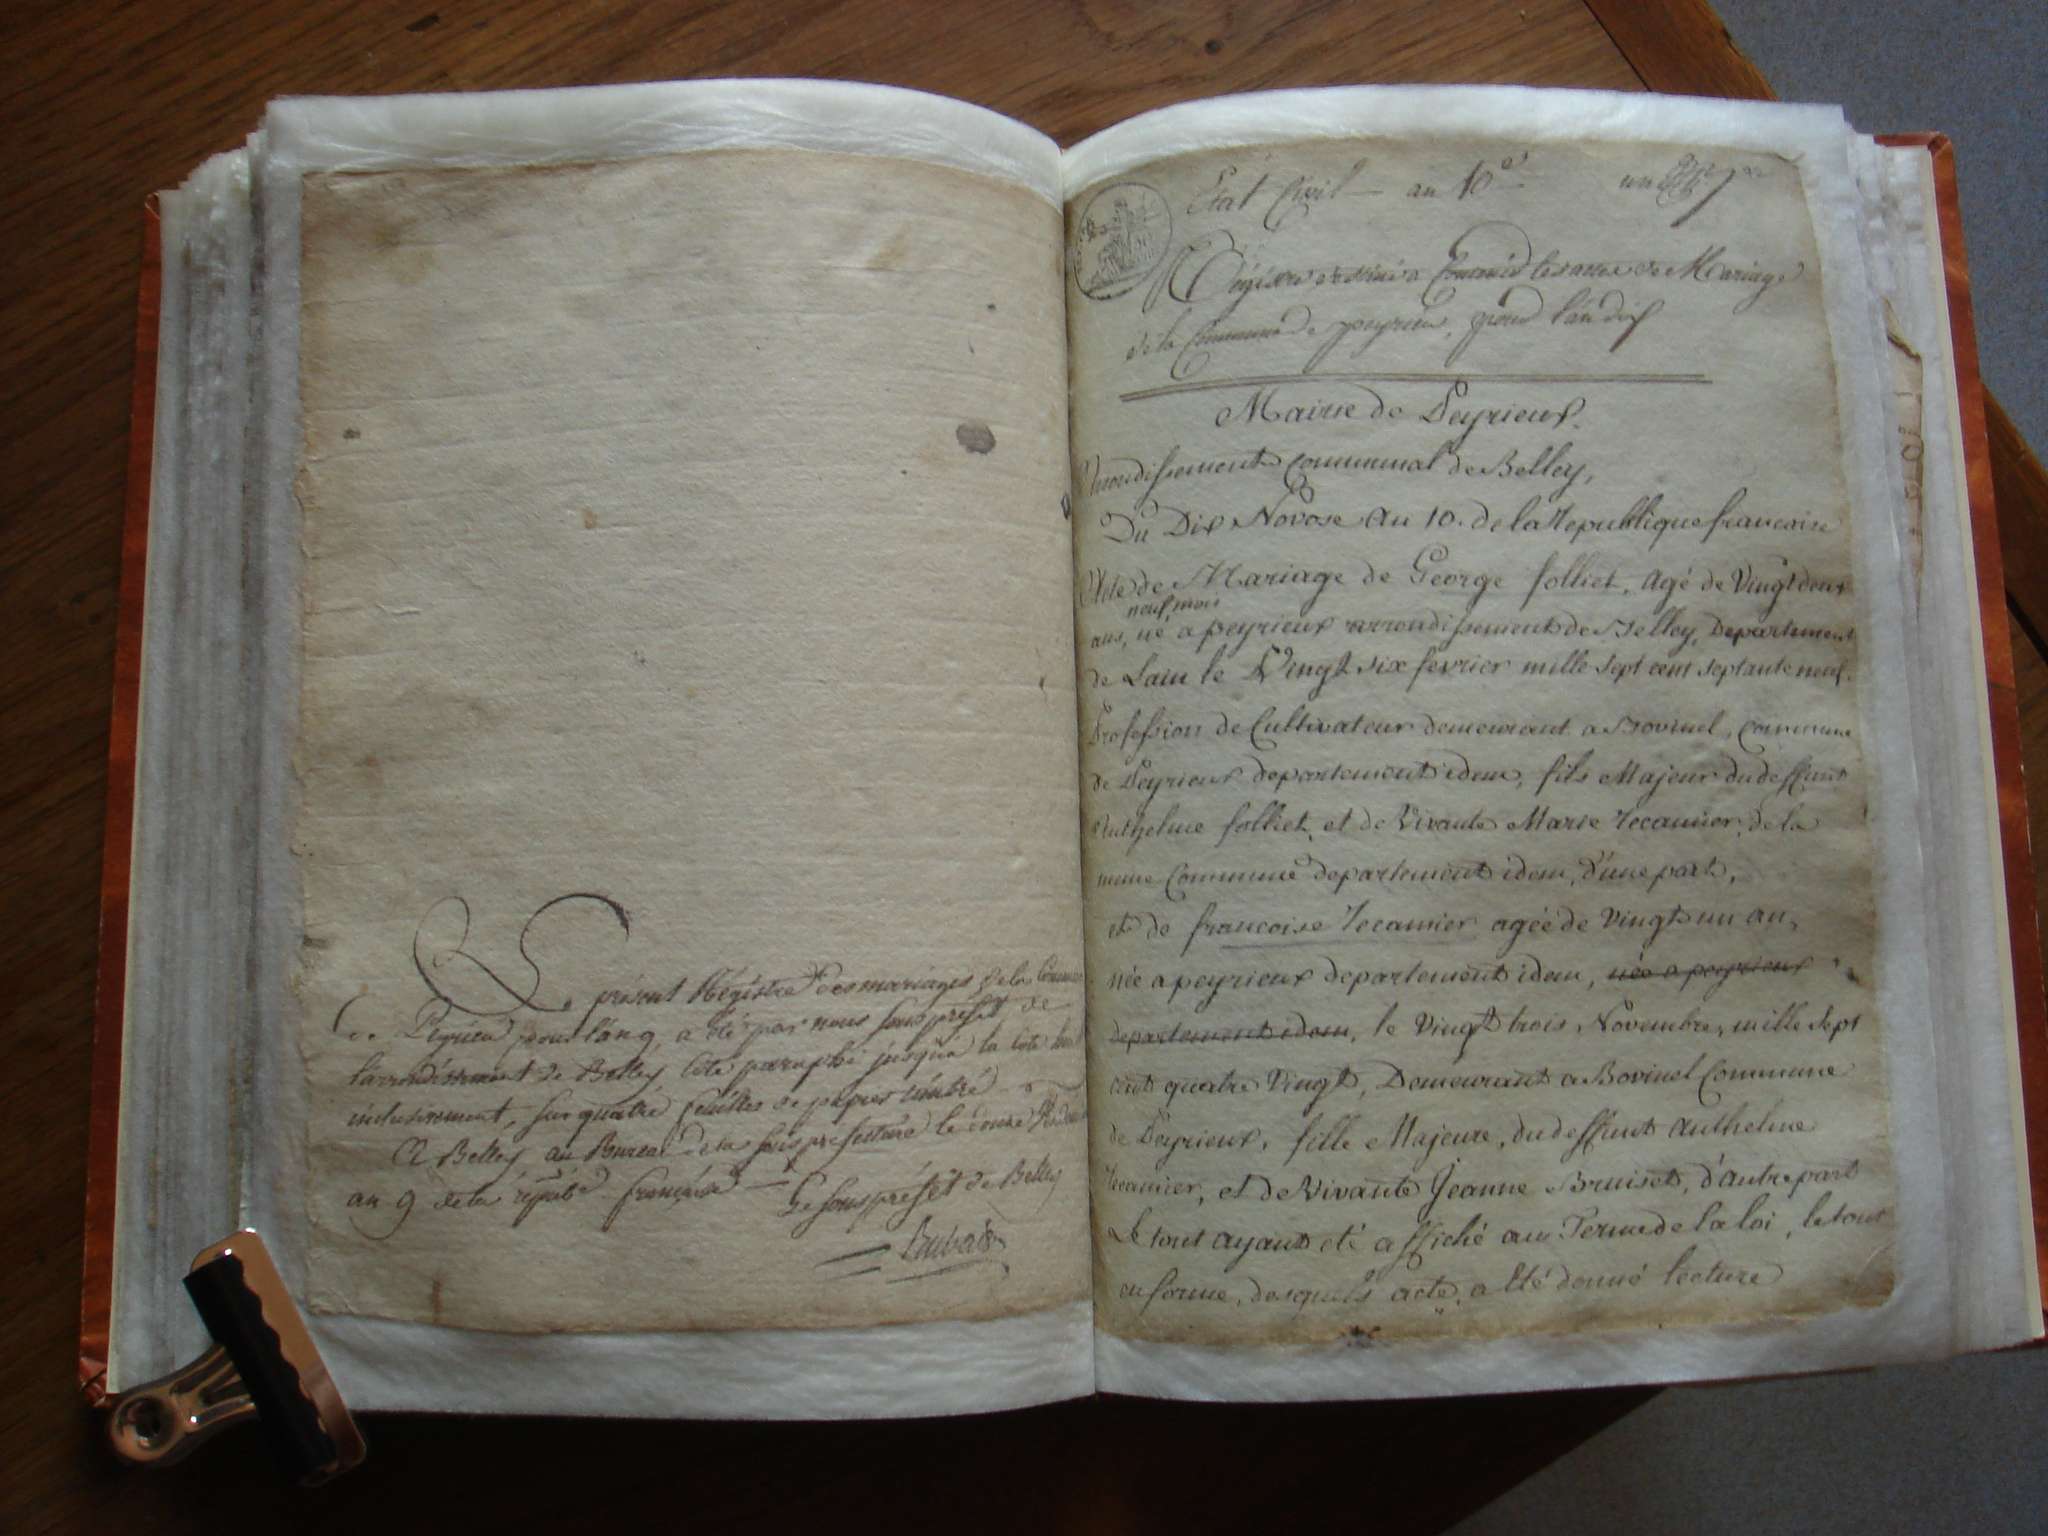 Le présent Régistre des mariages de la Commune
de Peyrieu pour l'an 9, a été par nous sous préfet de
l'arrondissement de Belley coté paraphé jusqu'à la cote huit
inclusivement, sur quatre feuilles de papier timbré
A Belley au Bureau de la sous prefecture le douze
an 9 de la répub. française
Le sous préfet de Belley
Etat Civil an 10e un
Régistre destiné a Contenir les actes de Mariage
de la Commune de peyrieu, pour l'an dix
Mairie de Peyrieux.
Arrondissement communal de Belley,
Du Dix Novose an 10. de la Republique francaise
Acte de Mariage de George folliet, agé de vingt deux
neuf mois
ans, né a peyrieux arrondissement de Belley, Departement
de Lain le Vingt six fevrier mille sept cent septante neuf.
Profession de Cultivateur demeurant a Bovinel, commune
de Peyrieux departement idem, fils Majeur du deffunt
Anthelme folliet, et de Vivante Marie Recamier, de la
meme Commune departement idem, d'une part,
et de francoise Recamier agée de vingt un an,
née a peyrieux departement idem, née a peyrieux
departement idem, le vingt trois Novembre, mille sept
cent quatre Vingt, Demeurant a Bovinel Commune
de Peyrieux, fille Majeure, du deffunt Anthelme
Recamier, et de Vivante Jeanne Bruiset, d'autre part
Le tout ayant eté affiché aux Terme de la loi, le tout
en forme, desquels acte, a été donné lecture